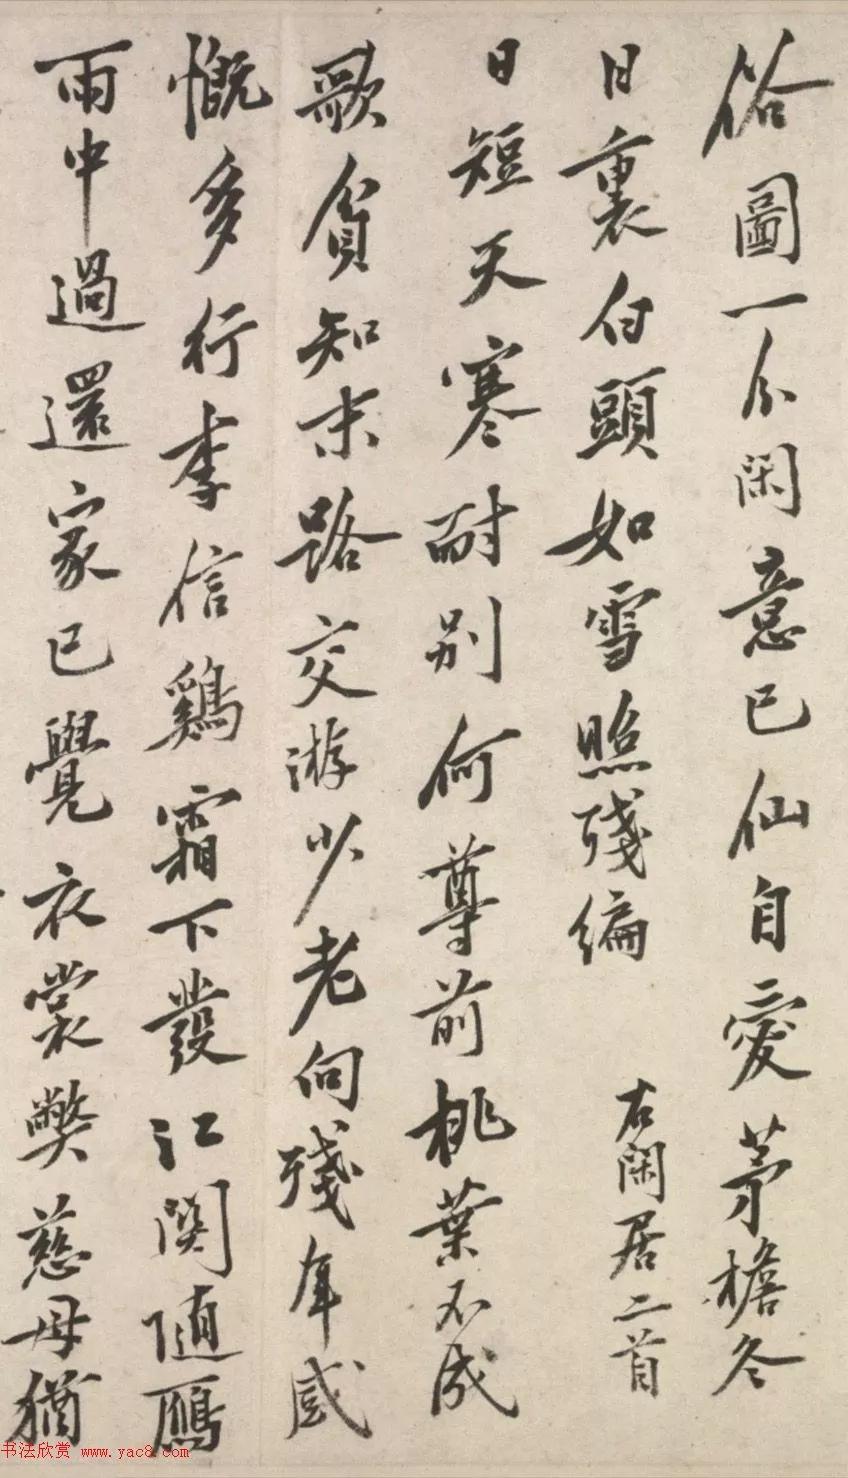 俗圖一分閑意已仙自愛茅檐冬
日裏白頭如雪照殘編
右閑居二首
日短天寒耐別何尊前桃葉不成
歌貧知末路交游少老向殘年感
慨多行李信鷄霜下發江関隨鴈
雨中過還家已覺衣裳弊慈母猶
书法欣赏 www.yac8.com